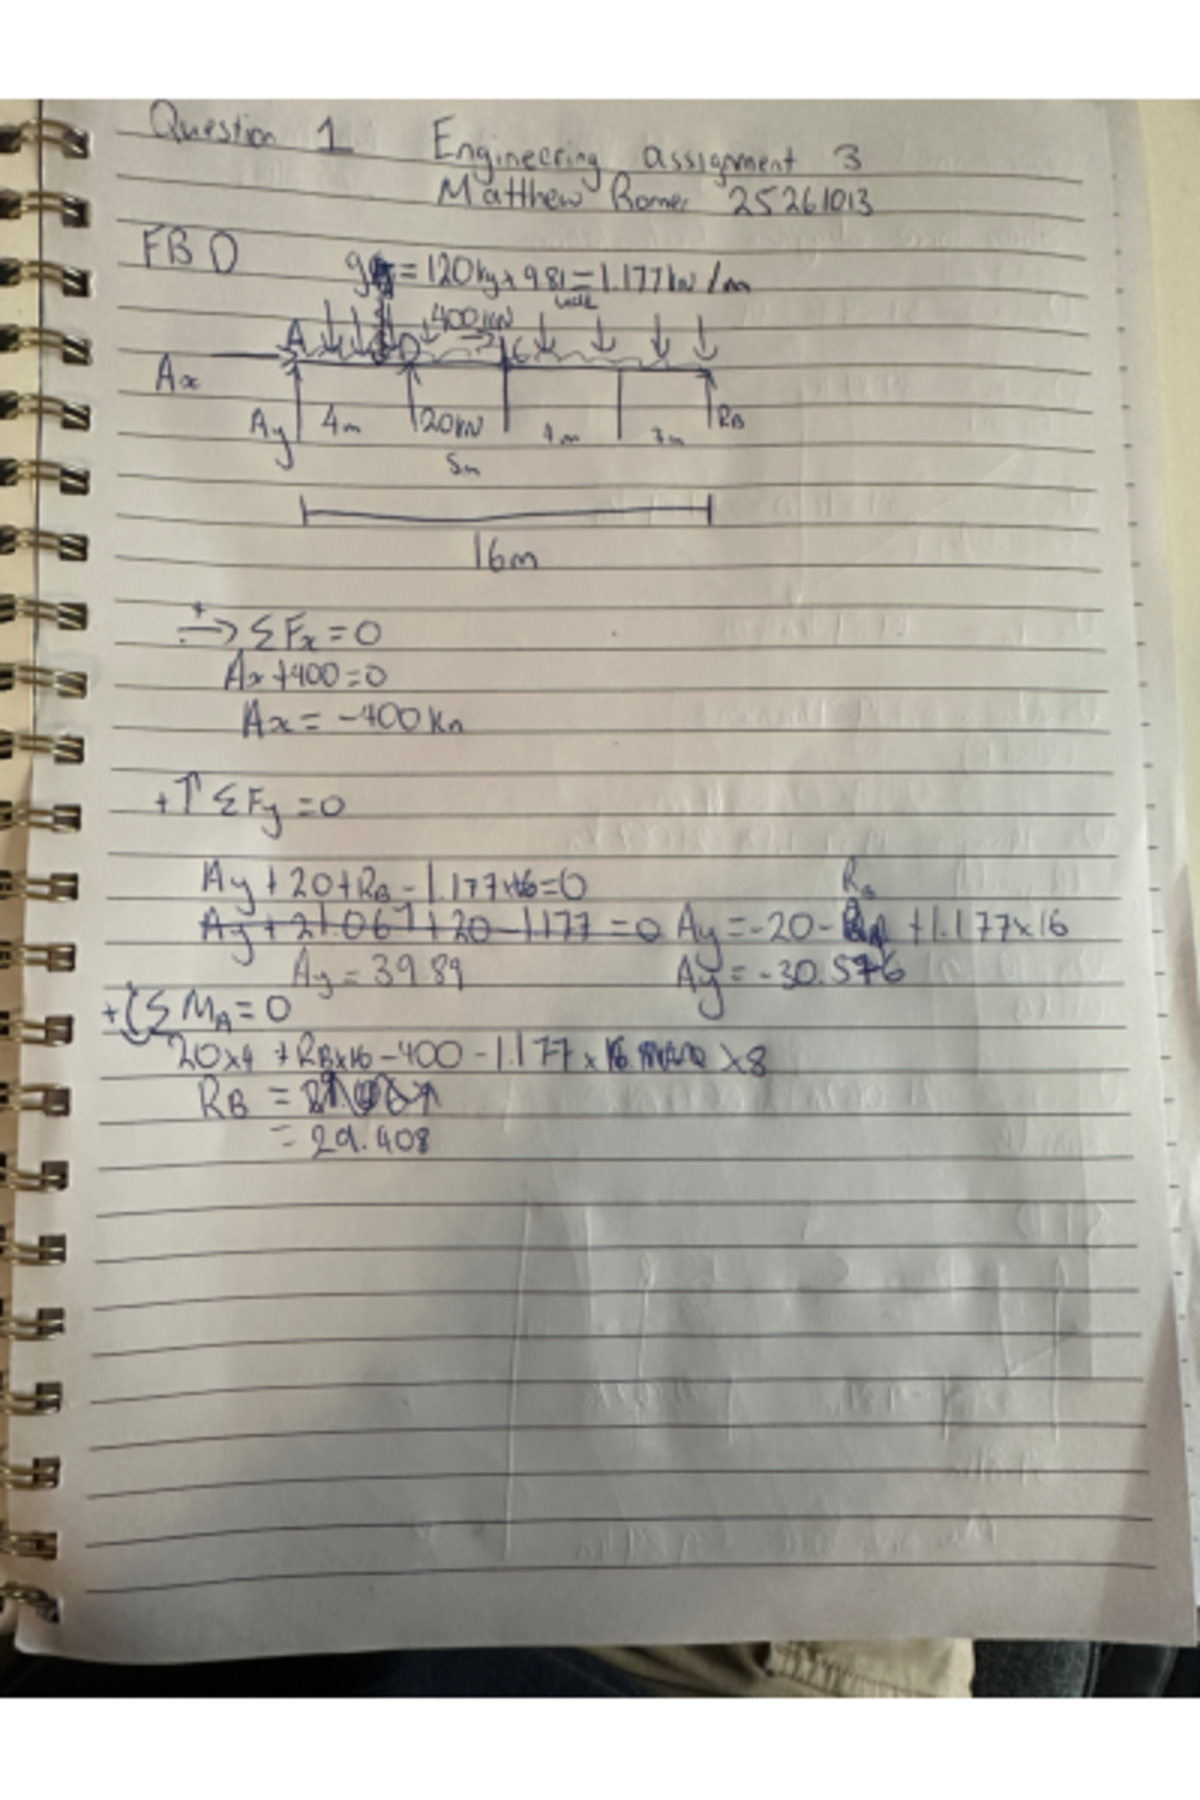 Question 1 Engineering assignment 3
Matthew Romer 25261013
FBD
= 120kg × 9.81 = 1.177kN/m
400kN
A D C
Ax
Ay 4m 20kN 4m 3m RB
5m
16m
+→ ΣFx = 0
Ax + 400 = 0
Ax = -400 kn
+↑ ΣFy = 0
Ay + 20 + RB - 1.177×16 = 0
Ay + 21.067 + 20 - 1.177 = 0 Ay = -20 - RB + 1.177×16
Ay = 39.89 Ay = -30.576
+ ΣMA = 0
20×4 + RB×16 - 400 - 1.177 × 16 ×8
RB =
= 29.408